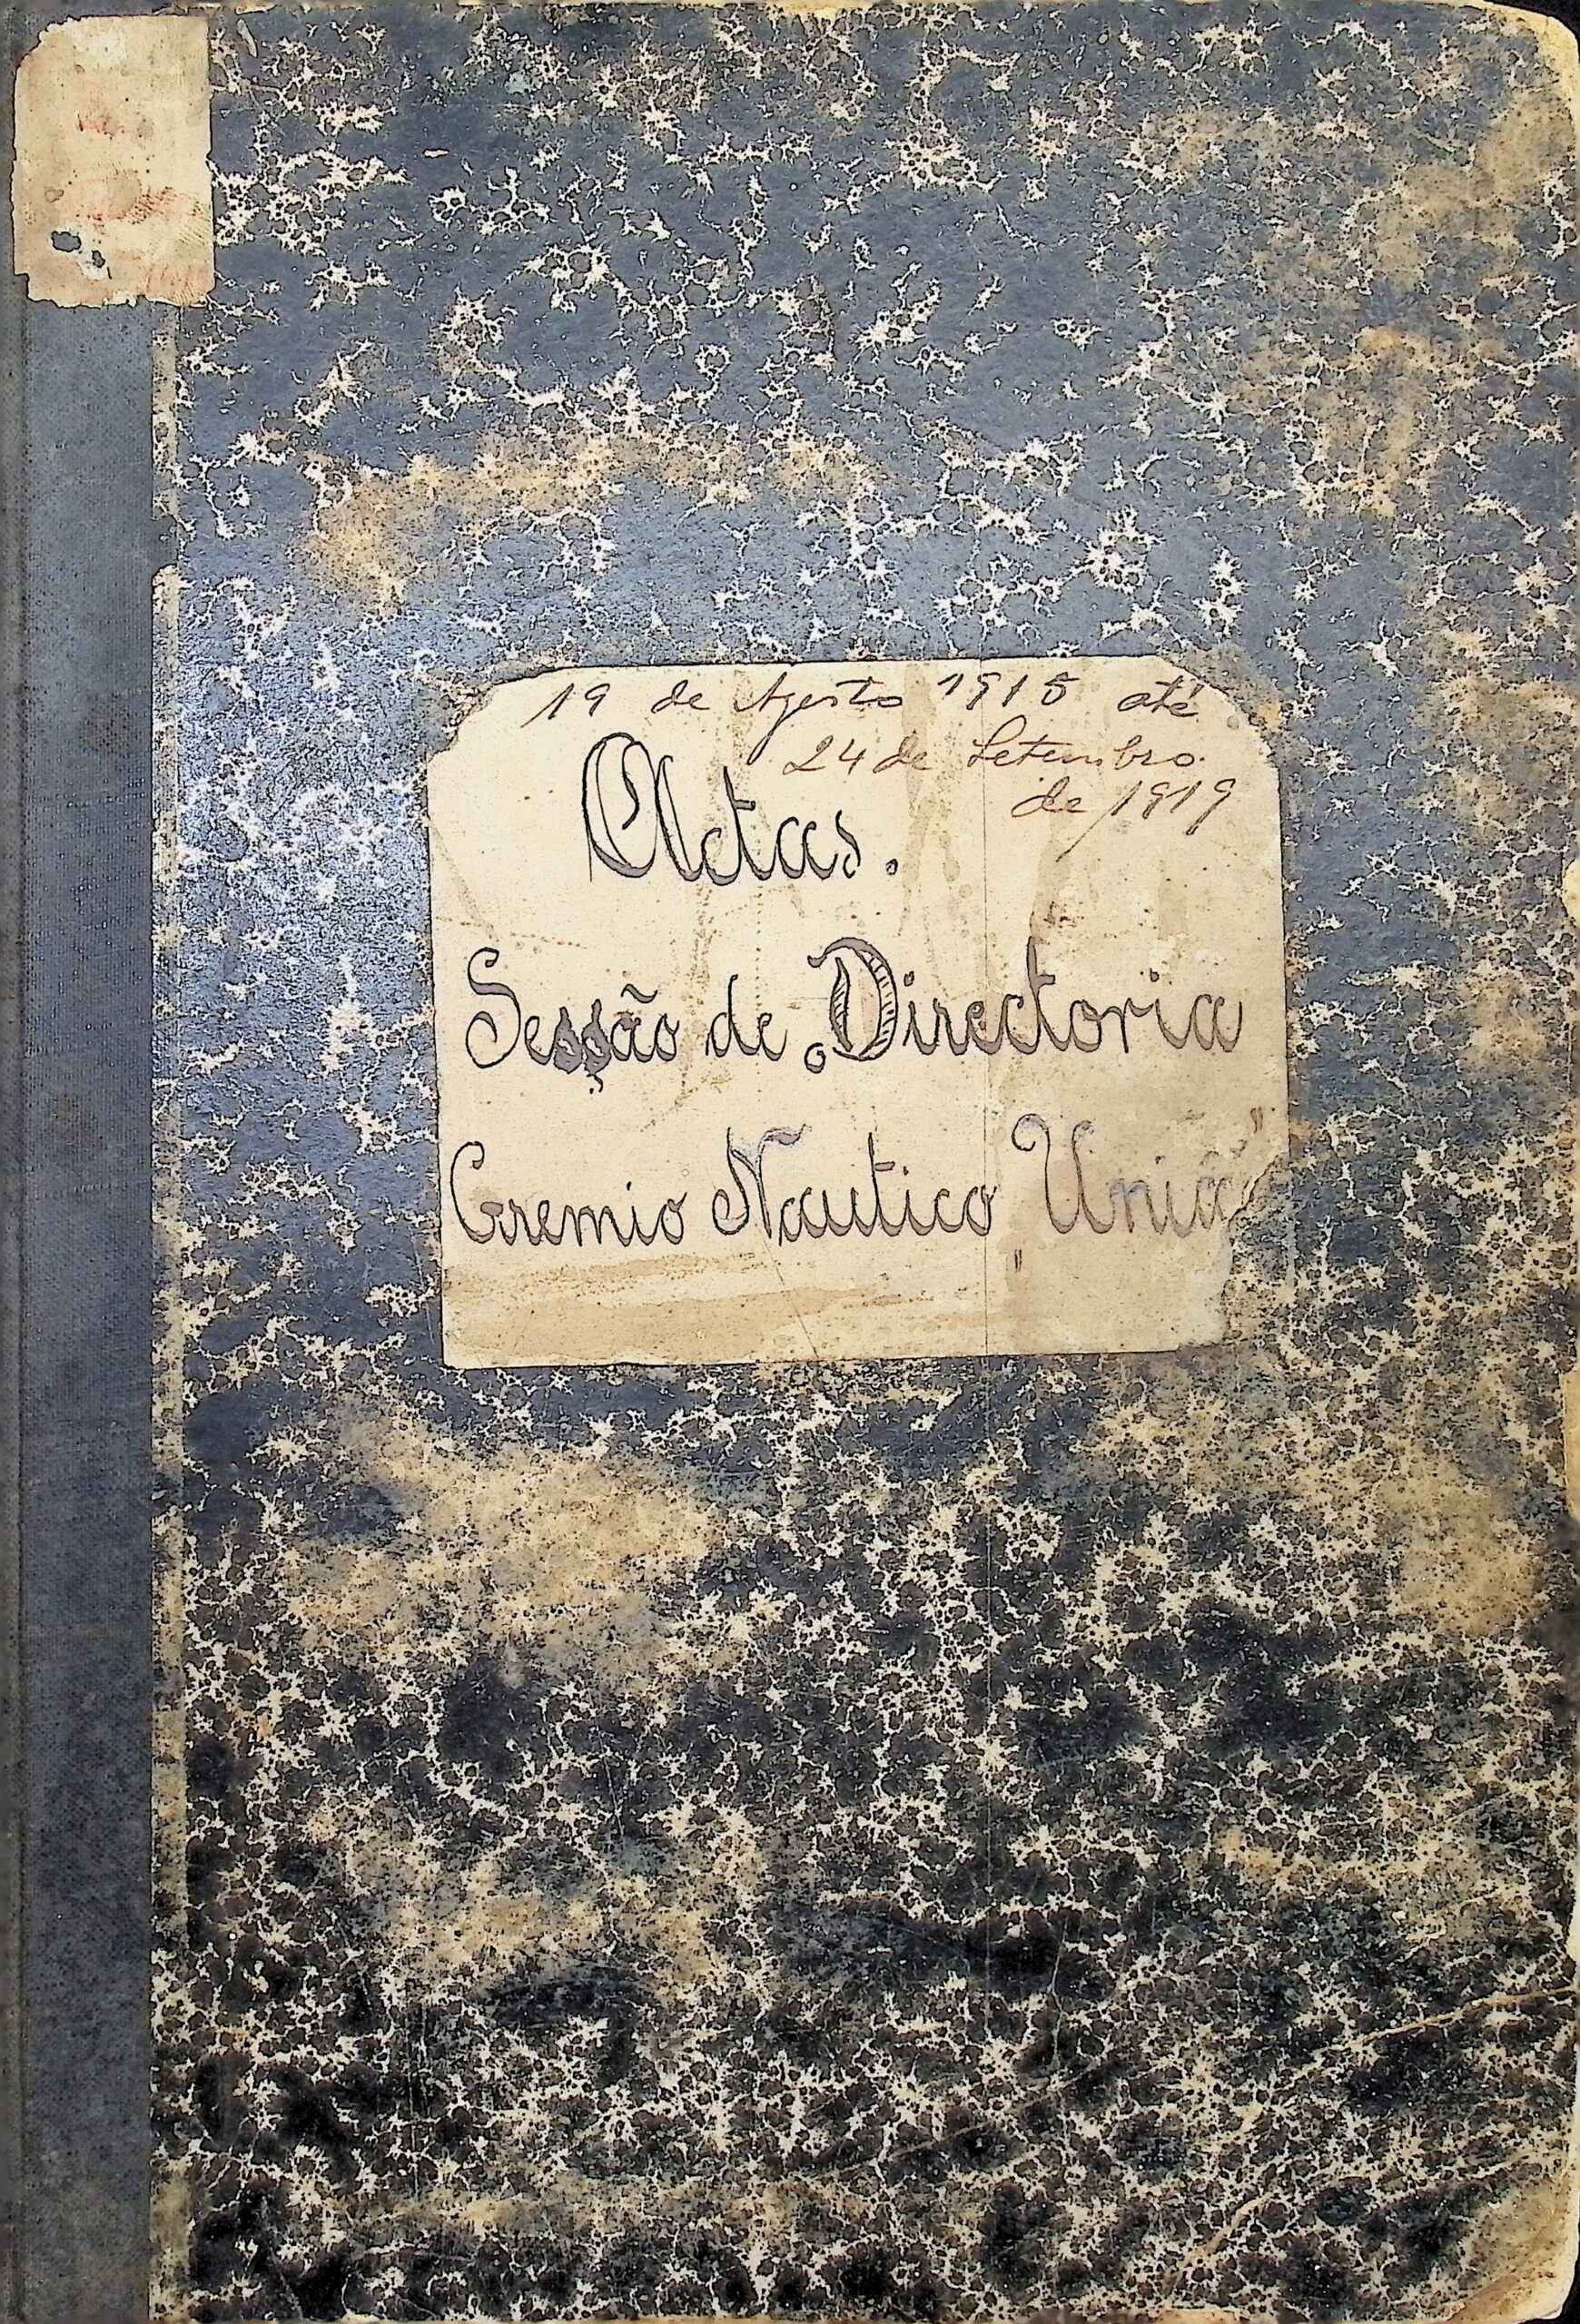 19 de Agosto 1915 até
24 de Setembro
de 1919
Actas.
Sessão de Directoria
Gremio Nautico „União"